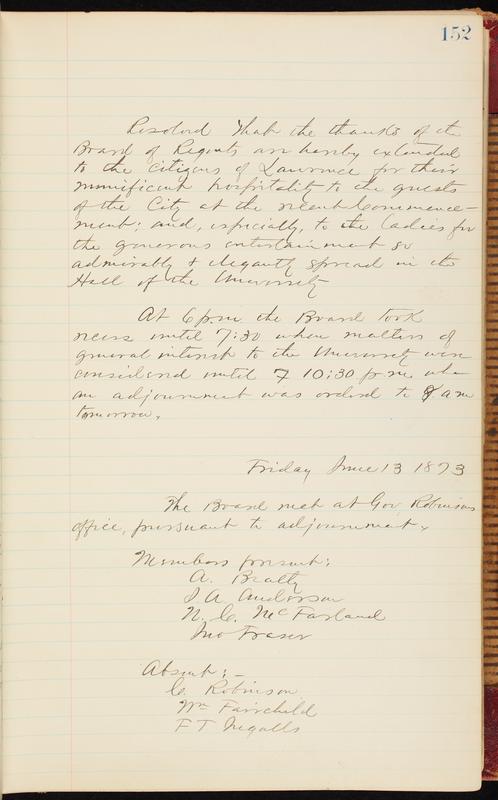 152
Resolved That the thanks of the
Board of Regents are hereby extended
to the citizens of Lawrence for their
munificent hospitality to the guests
of the City at the recent Commence-
ment; and, especially, to the Ladies for
the generous entertainment so
admirably & elegantly spread in the
Hall of the University
At 6 p.m. the Board took
recess until 7:30 when matters of
general interest to the University were
considered until 10:30 p m when
an adjournment was ordered to 8 a m
tomorrow.
Friday June 13 1873
The Board met at Gov. Robinsons
office, pursuant to adjournment.
Members present:
A. Beatty
J A Anderson
N. C. McFarland
Jno Fraser
Absent: –
C. Robinson
Wm Fairchild
F T Ingalls